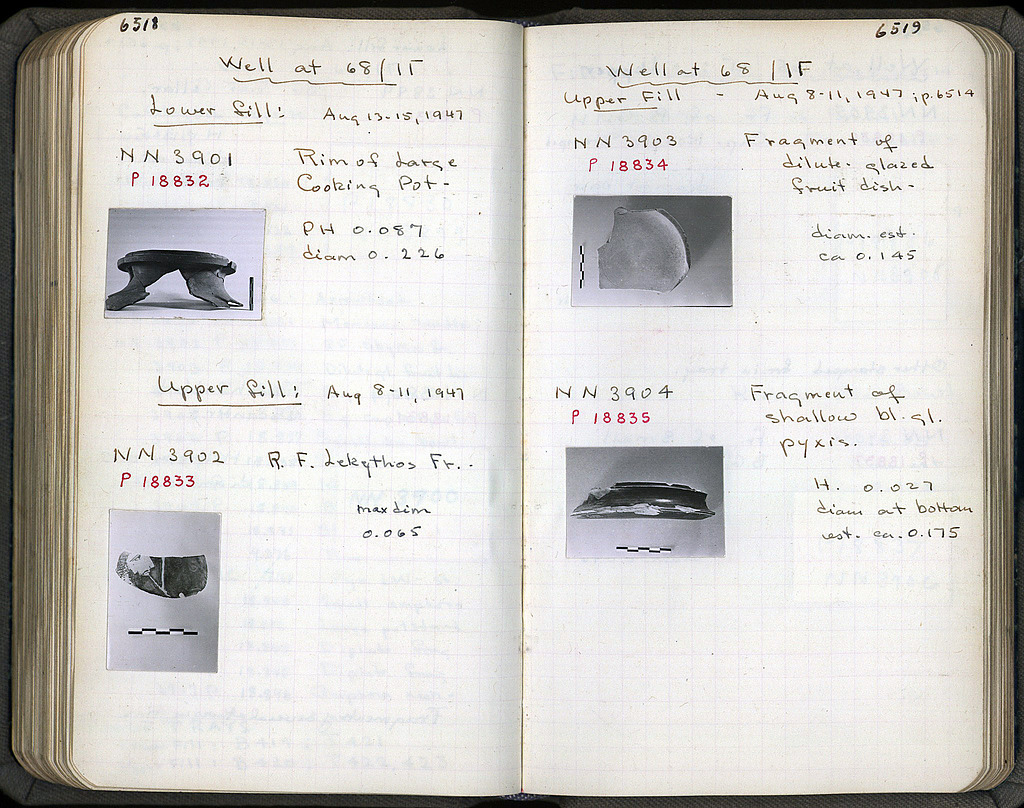 6518
Well at 68/1Γ
Lower fill: Aug 13-15, 1947
NN 3901 Rim of Large
P 18832 Cooking Pot-
PH 0.087
diam 0.226
Upper fill: Aug 8-11, 1947
NN 3902 R. F. Lekythos Fr..
P 18833
max dim
0.065
6519
Well at 68 /1F
Upper Fill - Aug 8-11, 1947; p. 6514
NN 3903 Fragment of
P 18834 dilute-glazed
fruit dish-
diam. est.
ca 0.145
NN 3904 Fragment of
P 18835 shallow bl. gl.
pyxis.
H. 0.027
diam at bottom
est. ca. 0.175